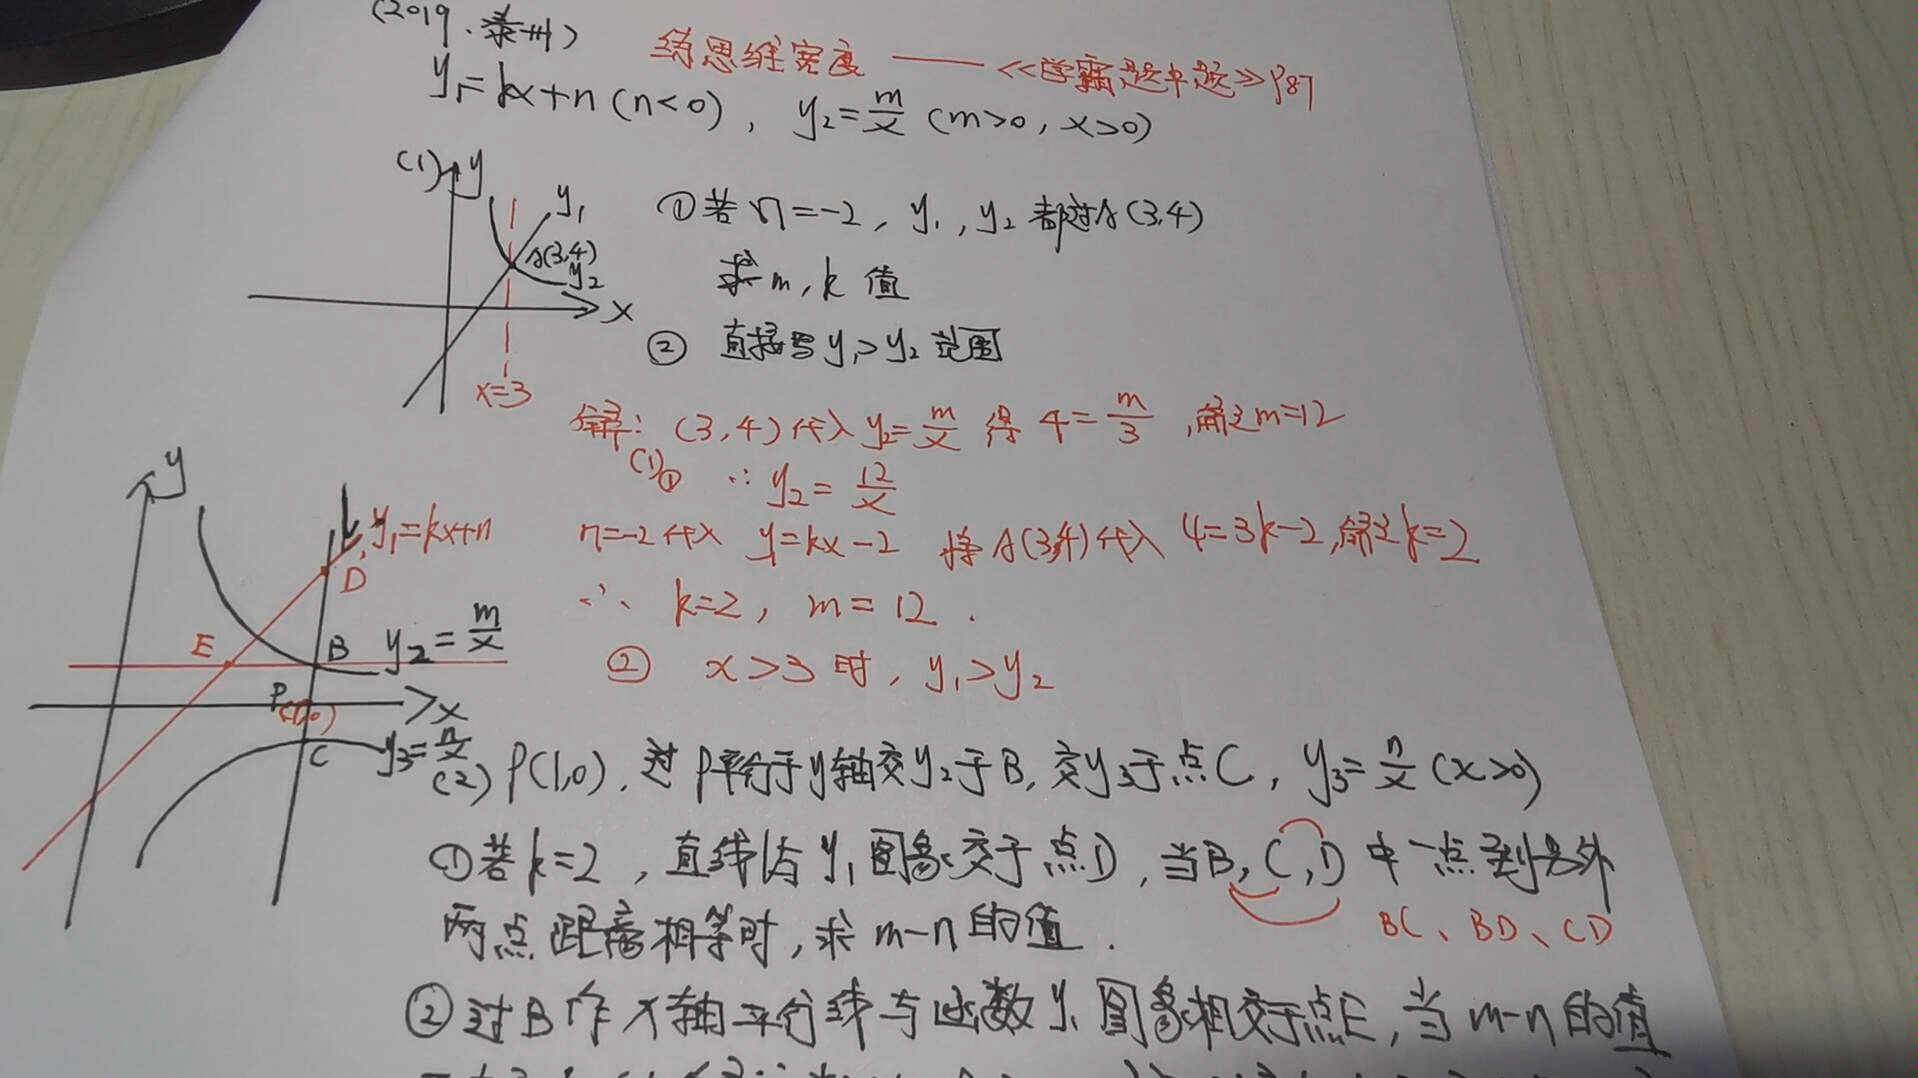 (2019.泰州)
拓思维宽度 ——《学霸题中题》P87
y₁=kx+n (n<0), y₂=m/x (m>0, x>0)
(1)
y
y₁
A(3,4)
y₂
x
x=3
①若 n=-2, y₁, y₂ 都过A(3,4)
求 m, k 值
② 直接写 y₁>y₂ 范围
解: (3,4)代入 y₂=m/x 得 4=m/3, 解之m=12
(1)① ∴ y₂=12/x
n=-2代入 y₁=kx-2 将A(3,4)代入 4=3k-2,解之k=2
∴ k=2, m=12.
② x>3时, y₁>y₂
y
l
y₁=kx+n
D
E
B
y₂=m/x
P
(1,0)
x
C
y₃=n/x
(2) P(1,0), 过P平行于y轴交y₂于B, 交y₃于点C, y₃=n/x (x>0)
①若k=2, 直线l与y₁图象交于点D, 当B, C, D 中一点到另外
两点距离相等时, 求 m-n 的值.
BC、BD、CD
②过B作x轴平行线与函数y₁图象相交于点E, 当 m-n的值